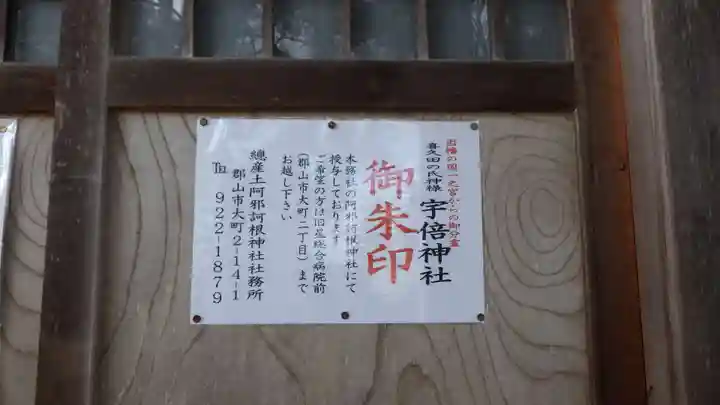 因幡の国一之宮からの御分霊
喜久田の氏神様
宇倍神社
御朱印
本務社の阿邪訶根神社にて
授与しております
ご希望の方は旧星総合病院前
(郡山市大町二丁目)まで
お越し下さい
總産土阿邪訶根神社社務所
郡山市大町2-14-1
℡ 922-1879